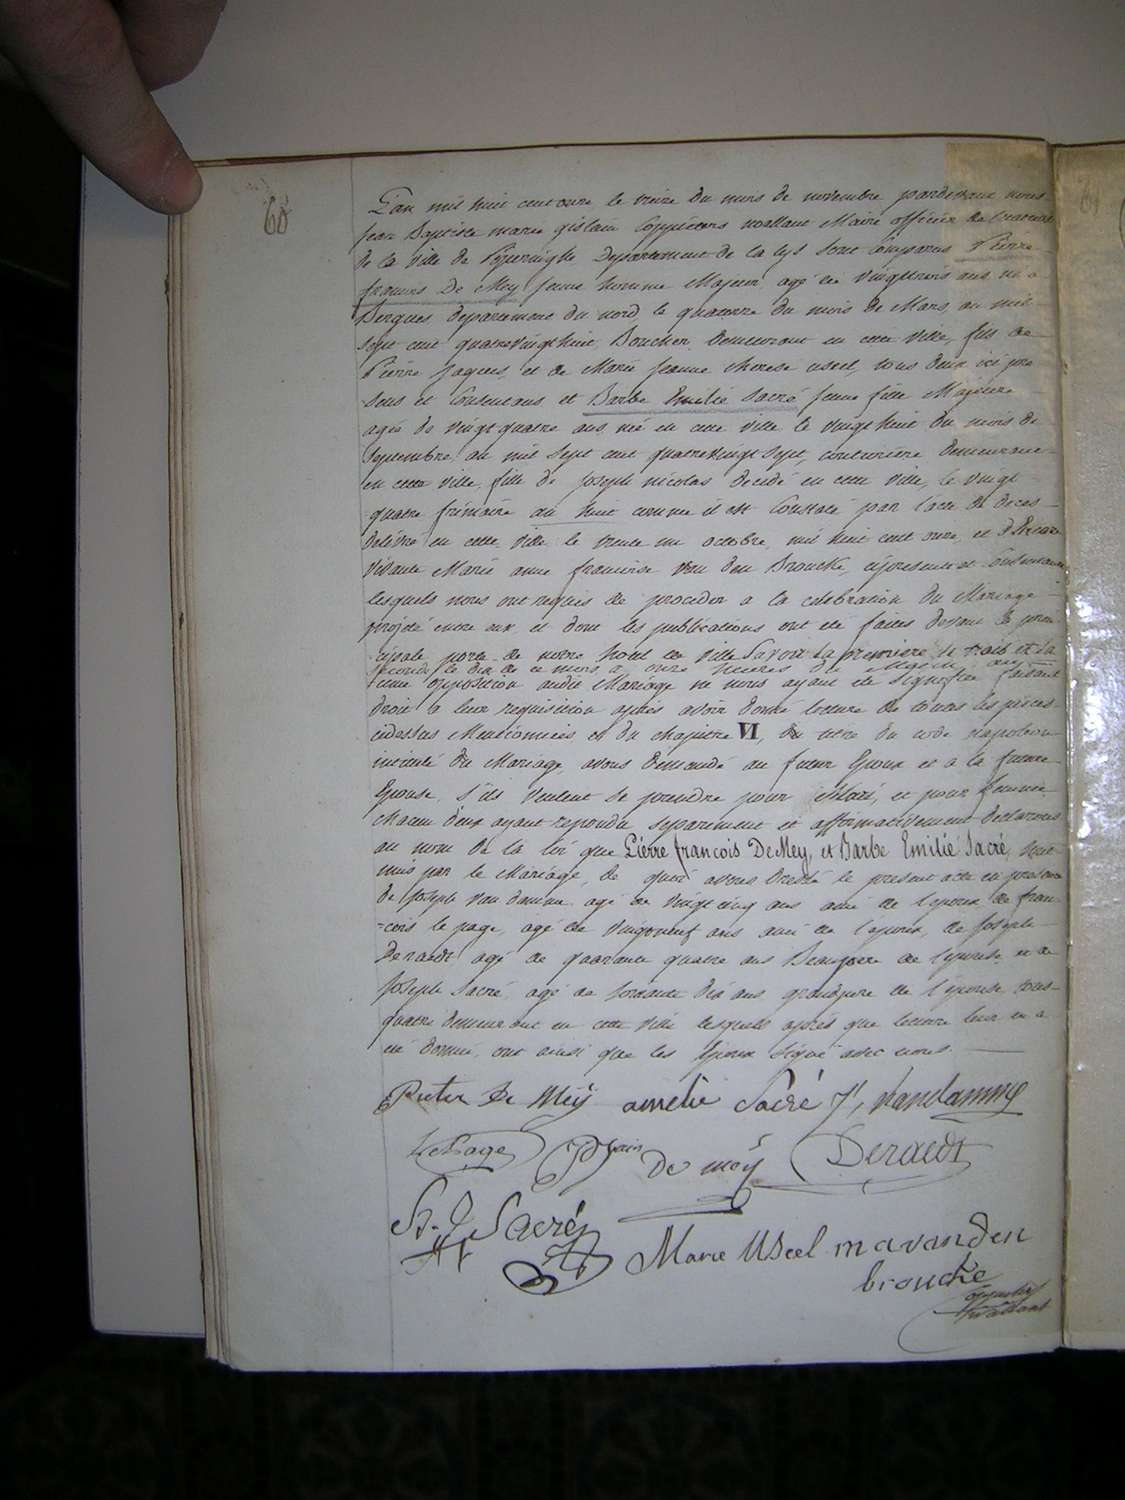 60
L'an mil huit cent onze le treize du mois de novembre pardevant nous
jean Baptiste marie gislain Coppieters wallant Maire officier de l'
de la ville de Poperinghe Departement de la lys sont Comparus Pierre
francois De Mey jeune homme Majeur, agé de vingttrois ans né a
Bergues, departement du nord le quatorze du mois de Mars, an mil
sept cent quatrevingthuit, Boucher, Demeurant en cette ville, fils de
Pierre Jaques, et de Marie jeanne therese useel, tous deux ici pre
-sens et Consentans et Barbe Emilie Sacré jeune fille Majeure
agée de vingt quatre ans, née en cette ville le vingt huit du mois de
Septembre, an mil sept cent quatrevingt sept, couturiere demeurante
en cette ville, fille de joseph nicolas decedé en cette ville, le vingt
-quatre frimaire an huit comme il est Constaté par l'acte de deces
Delivré en cette ville le trente un octobre, mil huit cent onze, et d'Encore
Vivante Marie anne francoise Van den Broucke, ci presente et Consentante
lesquels nous ont requis de proceder a la celebration du Mariage
projeté entre eux, et dont les publications ont eté faites devant la prin
cipale porte de notre hotel de ville Savoir la premiere le trois et la
seconde le dix de ce mois a onze heures du Matin, au-
-cune opposition audit Mariage ne nous ayant eté signifiée faisant
droit a leur requisition après avoir donné lecture de toutes les pieces
cidessus Mentionnées et du chapitre VI, du titre du code napoleon
intitulé du Mariage, avons demandé au futur Epoux et a la future
Epouse, s'ils veulent se prendre pour Mari, et pour femme,
chacun d'eux ayant repondu separement et affirmativement declarons
au nom de la loi que Pierre francois De Mey, et Barbe Emilié Sacré, sont
unis par le Mariage, de quoi avons dressé le present acte en presence
de joseph van damme agé de vingt cinq ans ami de l'epoux, de fran-
-cois le page, agé de vingtneuf ans ami de l'epoux, de joseph
Deraedt agé de quarante quatre ans Beaupere de l'epouse, et de
joseph Sacré, agé de soixante dix ans grandpere de l'epouse tous
quatre demeurant en cette ville lesquels après que lecture leur en a
eté donné, ont ainsi que les Epoux Signé avec nous.
Pieter De Meÿ amelie Sacré Jh, Vandamme
LePage De meÿ Deraedt
Sacré
Marie USeel m a vanden
broucke